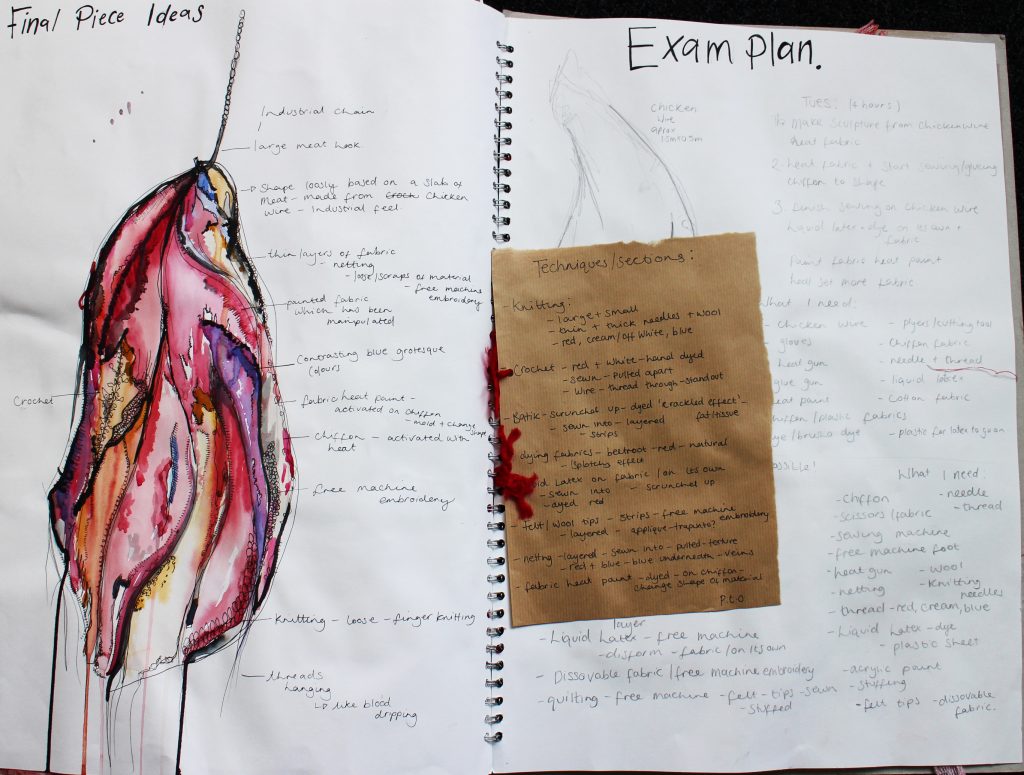 Final Piece Ideas
Industrial chain
large meat hook
Shape loosly based on a slab of
meat - made from chicken
wire - Industrial feel.
thin layers of fabric
- netting
- loose/scraps of material
- free machine
embroidery
painted fabric
which has been
manipulated
Contrasting blue grotesque
colours
Crochet
fabric heat paint -
activated on chiffon
- mold + change
shape
chiffon - activated with
heat
free machine
embroidery
Knitting - loose - finger knitting
threads
hanging
like blood
dripping
Exam Plan.
chicken
wire
aprox
Tues: (4 hours)
make sculpture from chickenwire
heat fabric
2. heat fabric + start sewing/glueing
chiffon to shape
3. finish sewing on chicken wire
liquid latex + dye on its own +
fabric
Paint fabric heat paint
heat set more fabric
Techniques/sections:
- Knitting:
- large + small
- thin + thick needles + wool
- red, cream/off white, blue
Crochet - red + white - hand dyed
- sewn - pulled apart
- wire - thread through - standout
- Batik - scrunched up - dyed 'crackled effect' -
- sewn into - layered fat/tissue
- strips
dying fabrics - beetroot - red - natural
- splotchy effect
Latex on fabric/on its own
- sewn into - scrunched up
- dyed red
- felt/wool tips - strips - free machine
- layered - applique - trapunto? embroidery
- netting - layered - sewn into - pulled - texture
- red + blue - blue underneath - veins
- fabric heat paint - dyed - on chiffon -
change shape of material
P.t.O
What I need:
- chicken wire - plyers/cutting tool
- gloves - Chiffon fabric
heat gun - needle + thread
glue gun - liquid latex
heat paint - Cotton fabric
chiffon/plastic fabrics
dye/brusho dye - plastic for latex to go on
What I need:
- chiffon - needle
- scissors/fabric - thread
- sewing machine
- free machine foot
- heat gun - wool
- netting - Knitting
needles
- thread - red, cream, blue
- Liquid Latex - dye
- plastic sheet
- acrylic paint
- stuffing
- felt tips - dissovable
fabric.
layer
- Liquid Latex - free machine
- disform - fabric/on its own
- Dissovable fabric/free machine embroidery
- quilting - free machine - felt - tips - sewn
- stuffed